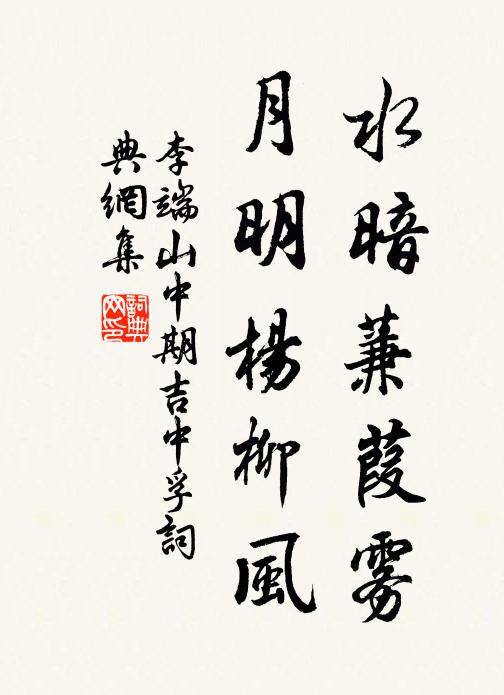 水暗蒹葭雾
月明楊柳風
李端山中期吉中孚詞
典網集
詞典网印